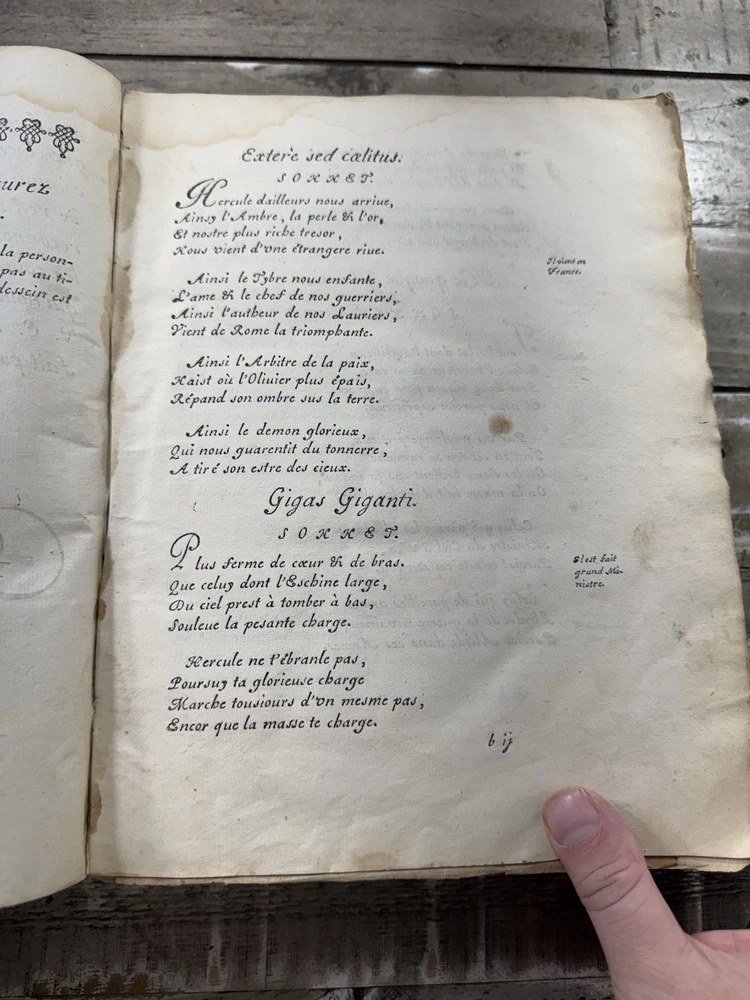 urez
la person-
pas au ti-
dessein est
Externe sed cœlitus.
SONNET.
Hercule dailleurs nous arriue,
Ainsy l'Ambre, la perle & l'or,
Et nostre plus riche tresor,
Nous vient d'vne étrangere riue.
Il vient en
France.
Ainsi le Tybre nous enfante,
L'ame & le chef de nos guerriers,
Ainsi l'autheur de nos Lauriers,
Vient de Rome la triomphante.
Ainsi l'Arbitre de la paix,
Naist où l'Oliuier plus épais,
Répand son ombre sus la terre.
Ainsi le demon glorieux,
Qui nous guarentit du tonnerre,
A tiré son estre des cieux.
Gigas Giganti.
SONNET.
Plus ferme de cœur & de bras.
Que celuy dont l'Eschine large,
Du ciel prest à tomber à bas,
Souleue la pesante charge.
Il est fait
grand Mi-
nistre.
Hercule ne t'ébranle pas,
Poursuy ta glorieuse charge
Marche tousiours d'vn mesme pas,
Encor que la masse te charge.
b ij